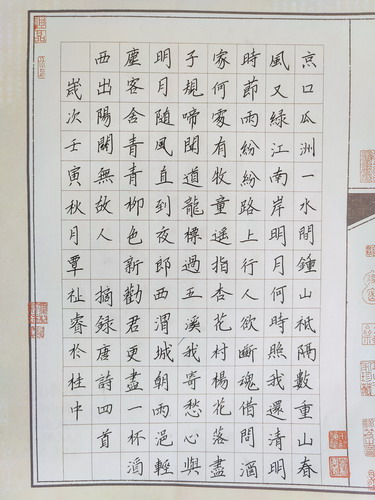 京口瓜洲一水間鍾山祗隔數重山春
風又綠江南岸明月何時照我還清明
時節雨紛紛路上行人欲斷魂借問酒
家何處有牧童遥指杏花村楊花落盡
子規啼聞道龍標過五溪我寄愁心與
明月随風直到夜郎西渭城朝雨浥輕
塵客舍青青柳色新勸君更盡一杯酒
西出陽關無故人 摘録唐詩四首
歲次壬寅秋月覃祉睿於桂中